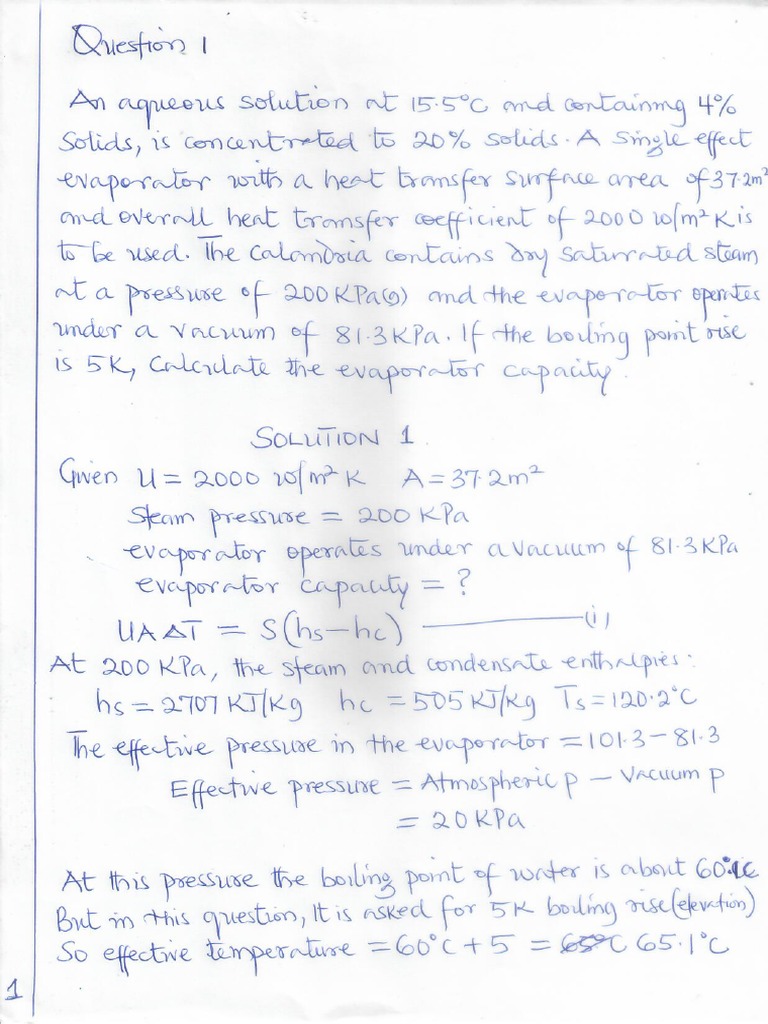 Question 1
An aqueous solution at 15.5°C and containing 4%
Solids, is concentrated to 20% solids. A single effect
evaporator with a heat transfer surface area of 37.2m²
and overall heat transfer coefficient of 2000 w/m² K is
to be used. The calandria contains dry saturated steam
at a pressure of 200 KPa(g) and the evaporator operates
under a vacuum of 81.3 KPa. If the boiling point rise
is 5K, Calculate the evaporator capacity.
SOLUTION 1.
Given U = 2000 w/m² K A = 37.2m²
Steam pressure = 200 KPa
evaporator operates under a vacuum of 81.3 KPa
evaporator capacity = ?
UAΔT = S(hs-hc) (i)
At 200 KPa, the steam and condensate enthalpies:
hs = 2707 KJ/Kg hc = 505 KJ/Kg Ts = 120.2°C
The effective pressure in the evaporator = 101.3 - 81.3
Effective pressure = Atmospheric p - Vacuum p
= 20 KPa
At this pressure the boiling point of water is about
But in this question, It is asked for 5K boiling rise (elevation)
So effective temperature = 60°C + 5 = 65.1°C
1